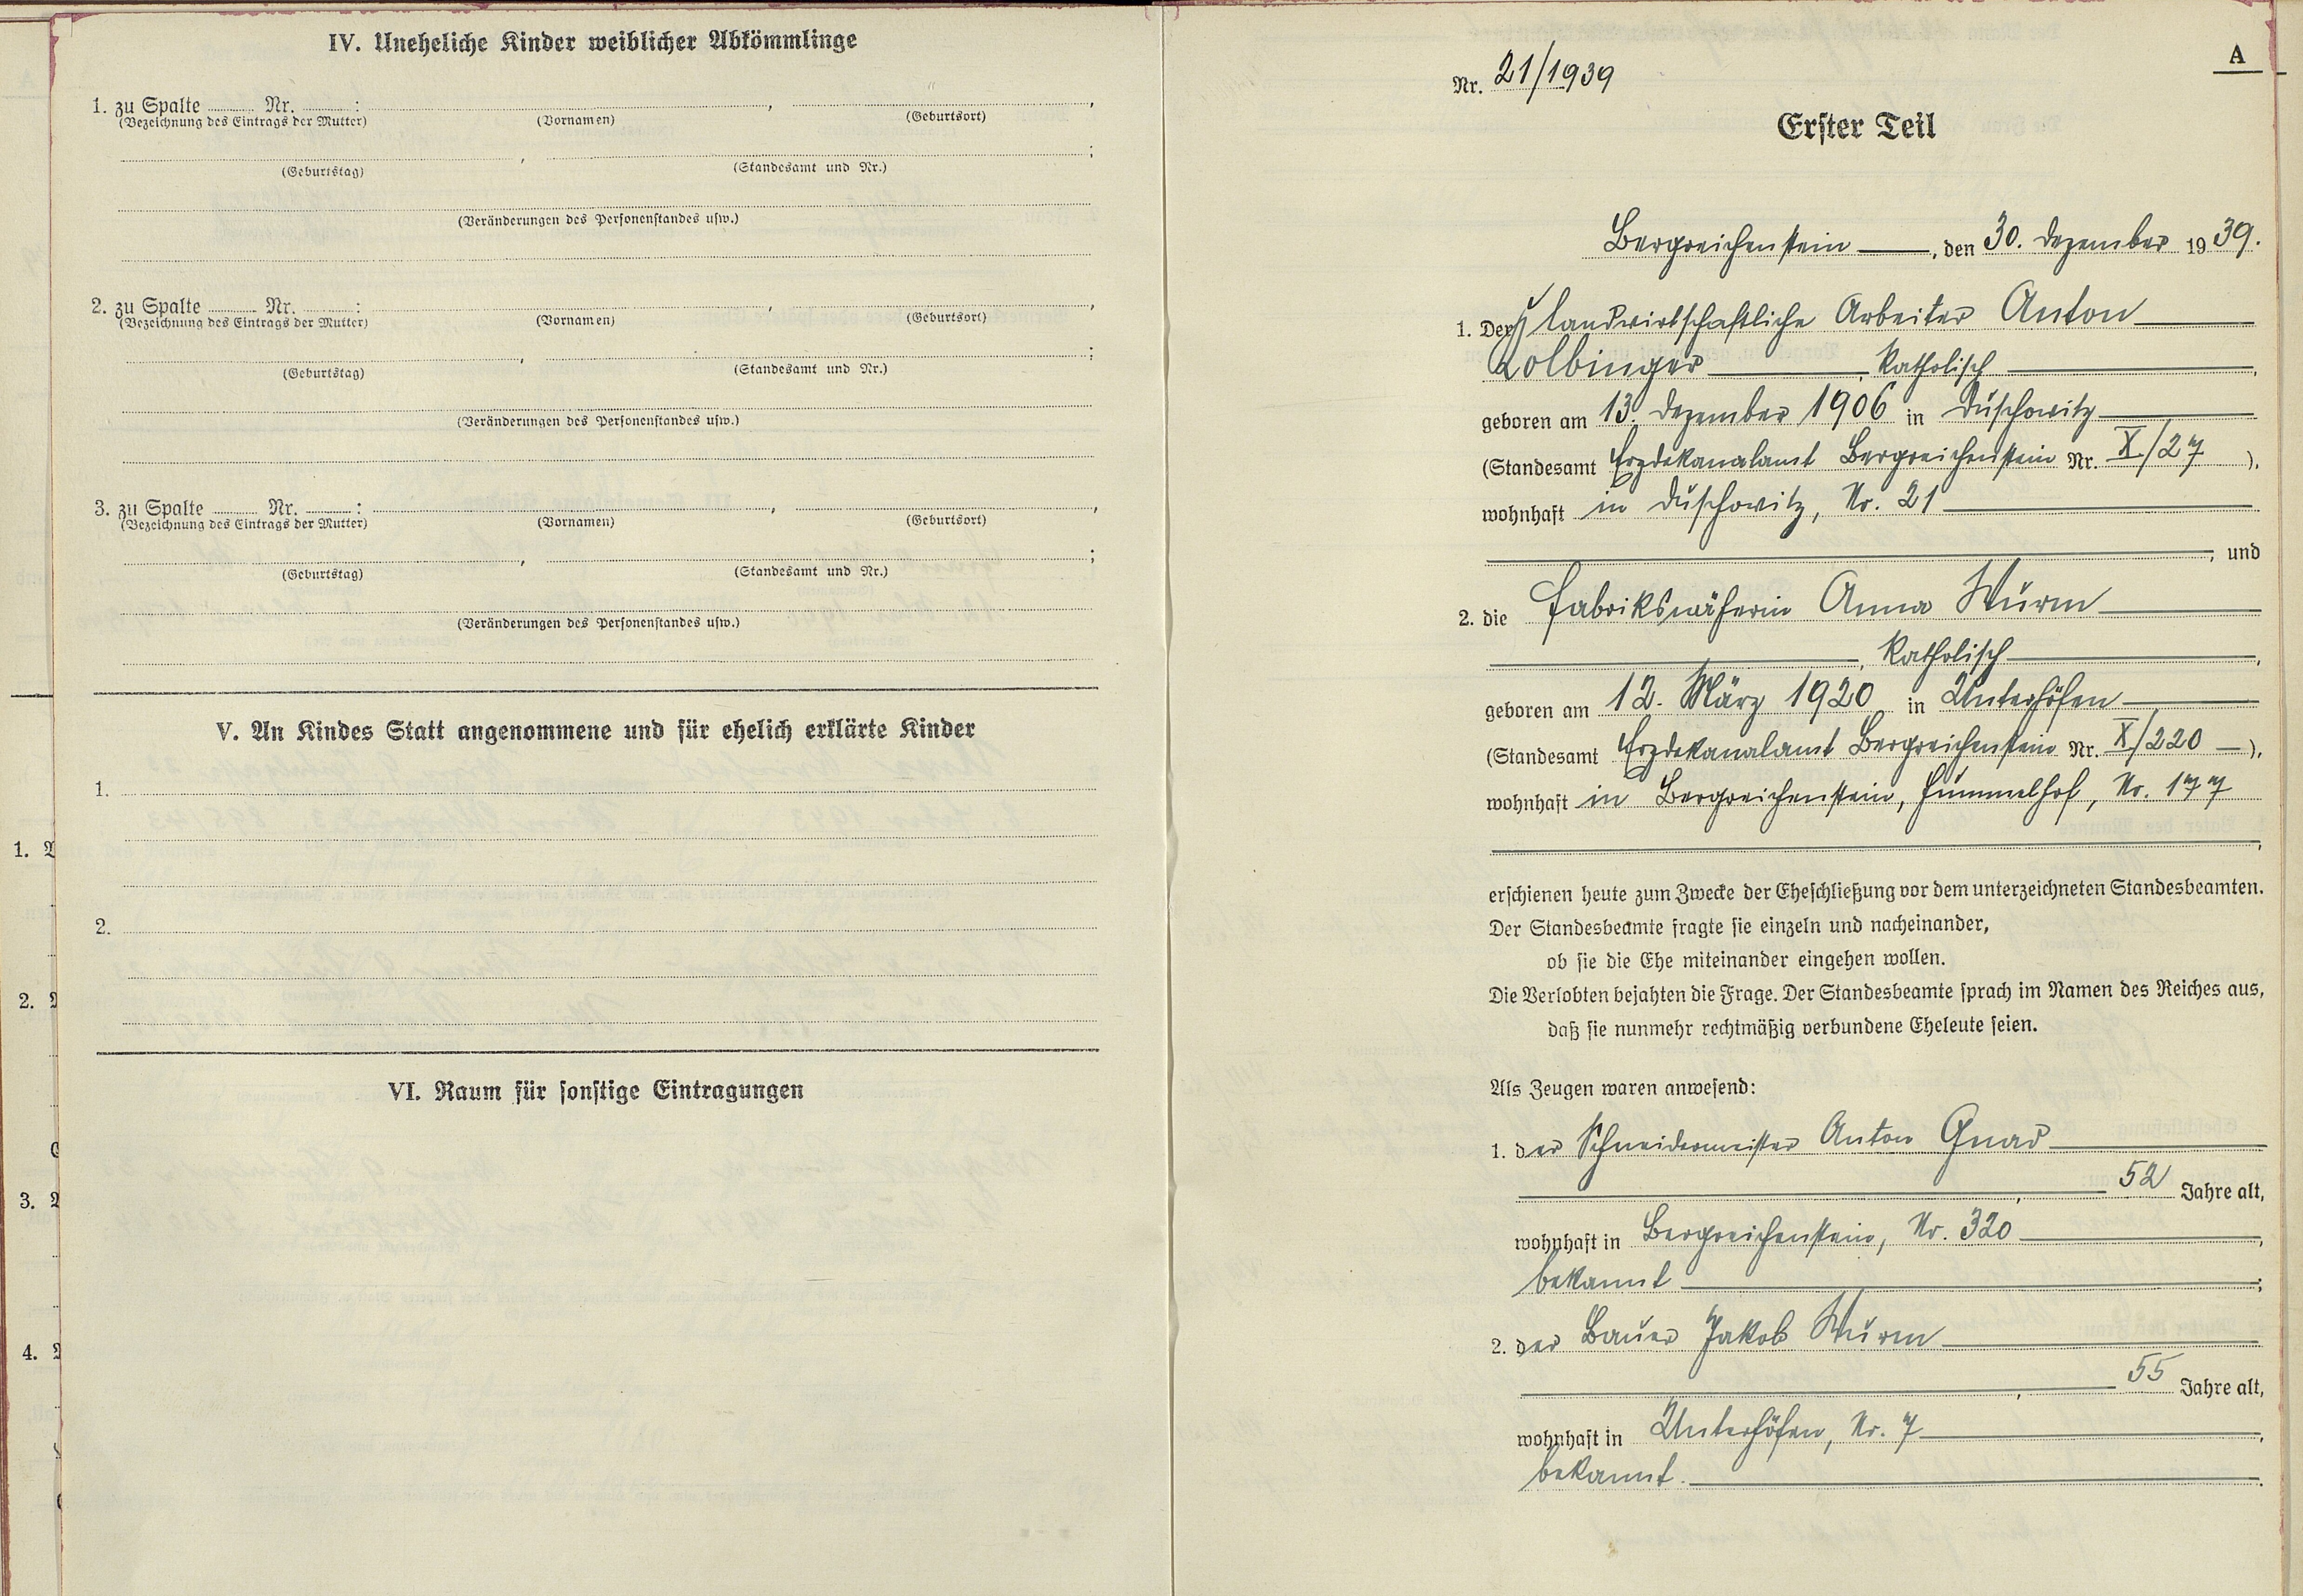 IV. Uneheliche Kinder weiblicher Abkömmlinge
1. zu Spalte Nr. : , ,
(Bezeichnung des Eintrags der Mutter) (Vornamen) (Geburtsort)
, ;
(Geburtstag) (Standesamt und Nr.)
(Veränderungen des Personenstandes usw.)
2. zu Spalte Nr. : , ,
(Bezeichnung des Eintrags der Mutter) (Vornamen) (Geburtsort)
, ;
(Geburtstag) (Standesamt und Nr.)
(Veränderungen des Personenstandes usw.)
3. zu Spalte Nr. : , ,
(Bezeichnung des Eintrags der Mutter) (Vornamen) (Geburtsort)
, ;
(Geburtstag) (Standesamt und Nr.)
(Veränderungen des Personenstandes usw.)
V. An Kindes Statt angenommene und für ehelich erklärte Kinder
1.
2.
VI. Raum für sonstige Eintragungen
1.
2.
3.
4.
A
Nr. 21/1939
Erster Teil
Bergreichenstein, den 30. Dezember 1939.
1. Der landwirtschaftliche Arbeiter Anton
Lolbinger, katholisch,
geboren am 13. Dezember 1906 in Duschowitz
(Standesamt Erzdekanalamt Bergreichenstein Nr. X/27),
wohnhaft in Duschowitz, Nr. 21
, und
2. die Fabriksnäherin Anna Wurm
, katholisch,
geboren am 12. März 1920 in Unterhöfen
(Standesamt Erzdekanalamt Bergreichenstein Nr. X/220),
wohnhaft in Bergreichenstein, Hummelhof, Nr. 177
,
erschienen heute zum Zwecke der Eheschließung vor dem unterzeichneten Standesbeamten.
Der Standesbeamte fragte sie einzeln und nacheinander,
ob sie die Ehe miteinander eingehen wollen.
Die Verlobten bejahten die Frage. Der Standesbeamte sprach im Namen des Reiches aus,
daß sie nunmehr rechtmäßig verbundene Eheleute seien.
Als Zeugen waren anwesend:
1. der Schneidermeister Anton Gnad
, 52 Jahre alt,
wohnhaft in Bergreichenstein, Nr. 320,
bekannt;
2. der Bauer Jakob Wurm
, 55 Jahre alt,
wohnhaft in Unterhöfen, Nr. 7,
bekannt.